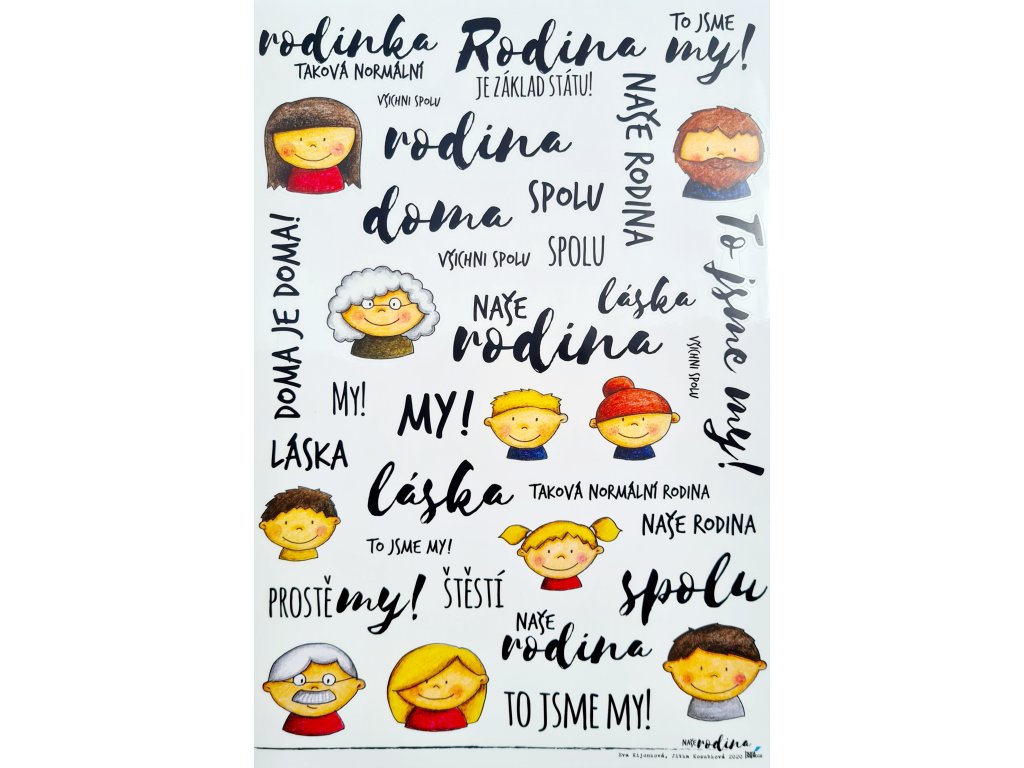 rodinka
TAKOVÁ NORMÁLNÍ
Rodina
JE ZÁKLAD STÁTU!
TO JSME
my!
VŠICHNI SPOLU
rodina
NAŠE RODINA
doma
SPOLU
VŠICHNI SPOLU
SPOLU
DOMA JE DOMA!
To jsme my!
NAŠE
rodina
láska
VŠICHNI SPOLU
MY!
MY!
LÁSKA
láska
TAKOVÁ NORMÁLNÍ RODINA
NAŠE RODINA
TO JSME MY!
PROSTĚ my!
ŠTĚSTÍ
spolu
NAŠE
rodina
TO JSME MY!
NAŠE rodina
Eva Kijonková, Jitka Kosubková 2020